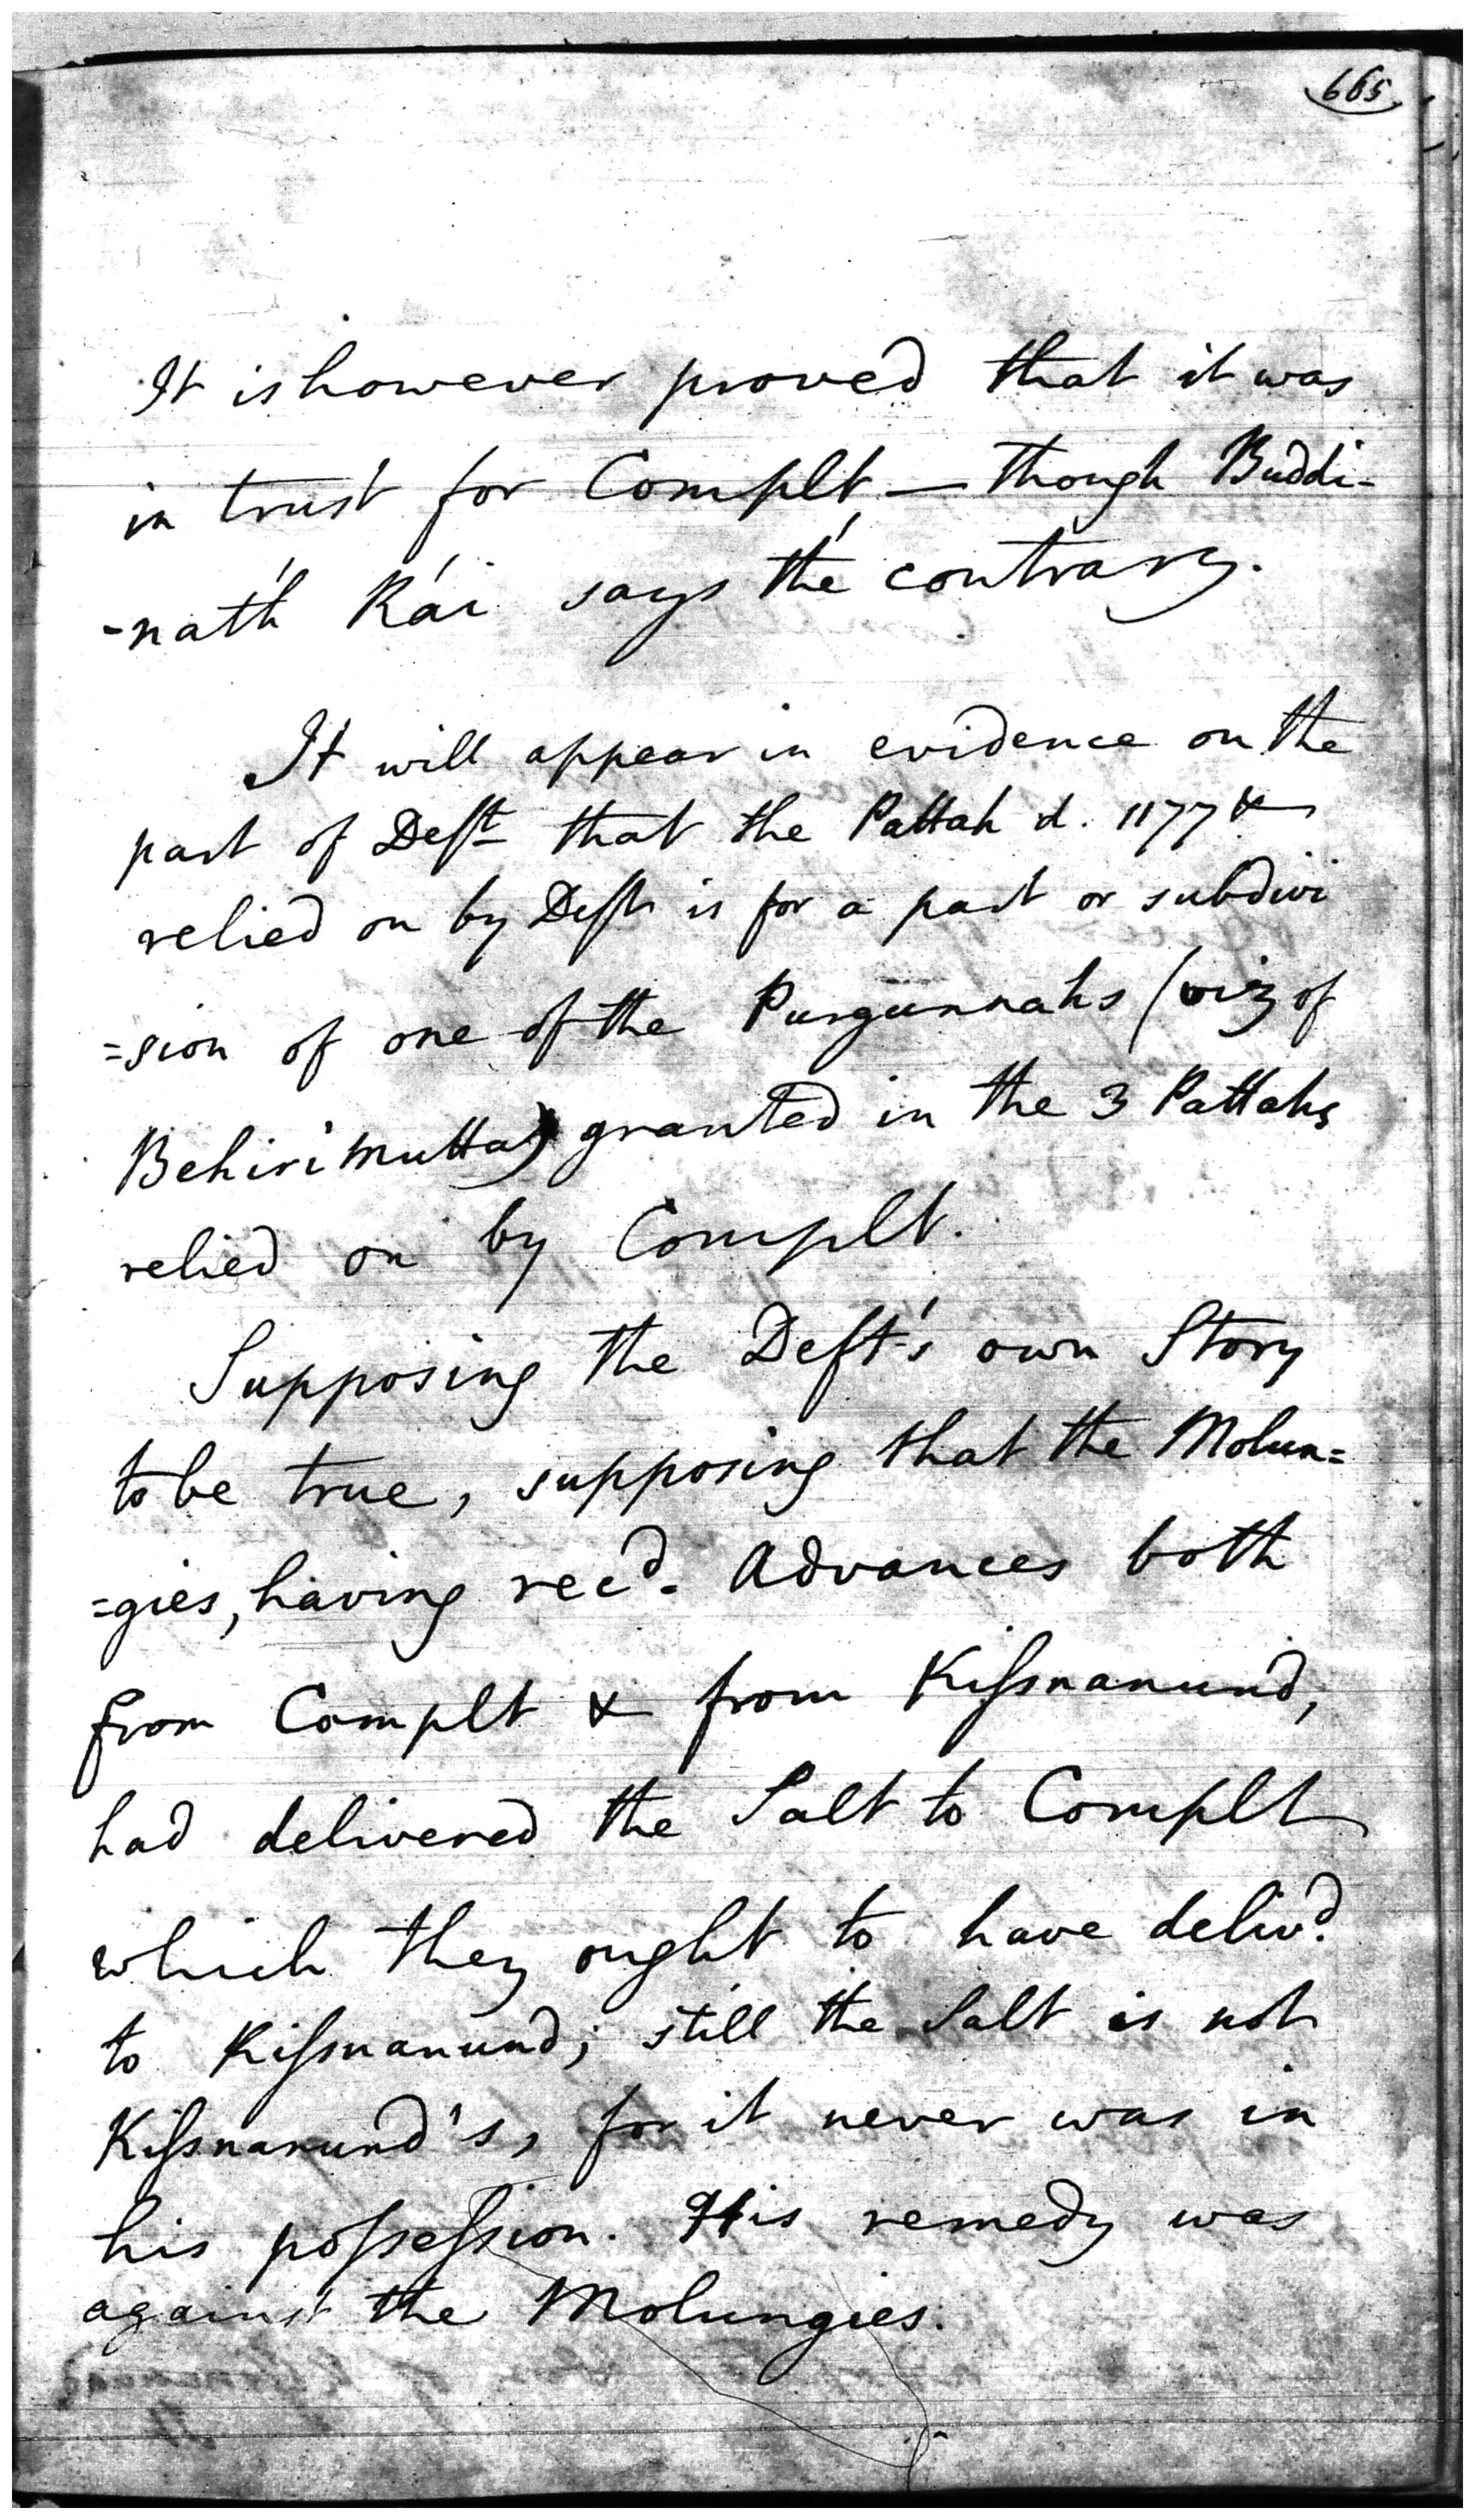 665
It is however proved that it was
in trust for Complt — though Buddi-
-náth Rái says the contrary.
It will appear in evidence on the
part of Deft that the Pattah d. 1177 &
relied on by Deft is for a part or subdivi
=sion of one of the Purgunnahs (viz of
Behirimutta) granted in the 3 Pattahs
relied on by Complt.
Supposing the Deft's own Story
to be true, supposing that the Molun=
=gies, having recd. Advances both
from Complt & from Kissnanund,
had delivered the Salt to Complt
which they ought to have delivd.
to Kissnanund; still the Salt is not
Kissnanund's, for it never was in
his possession. His remedy was
against the Molungies.